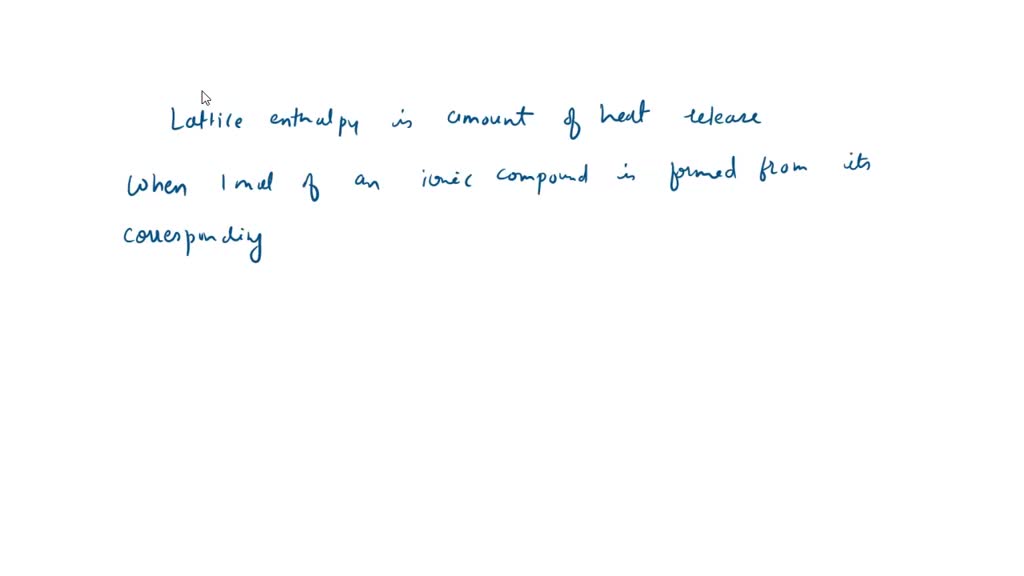 Lattice enthalpy is amount of heat release
when 1 mol of an ionic compound is formed from its
corresponding